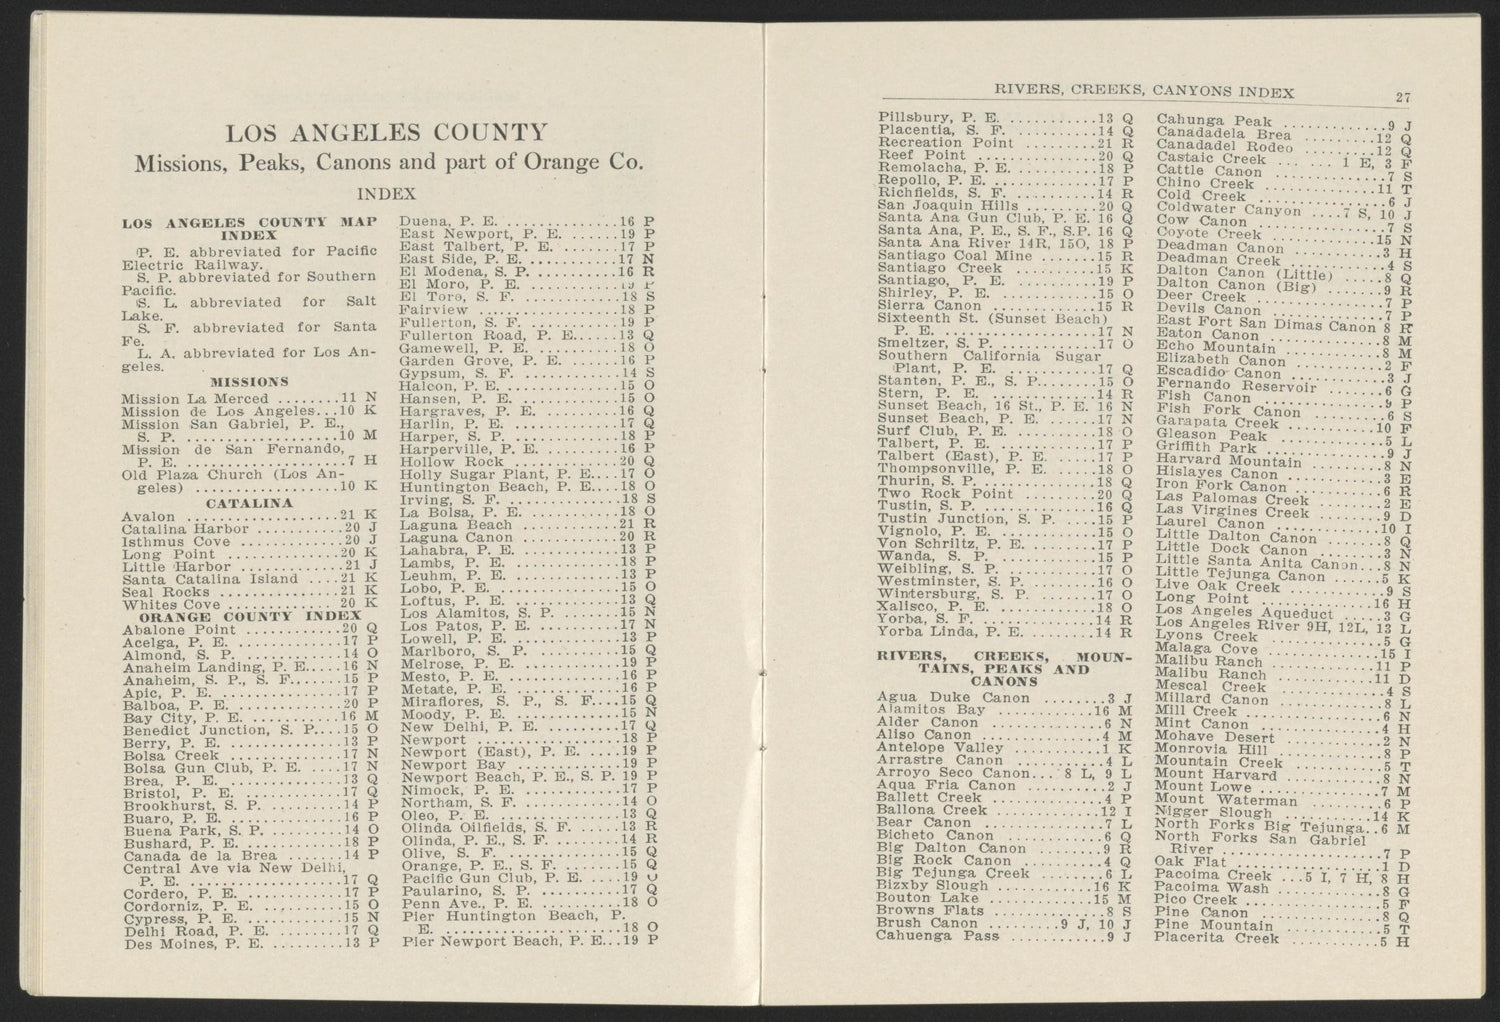 LOS ANGELES COUNTY
Missions, Peaks, Canons and part of Orange Co.
INDEX
LOS ANGELES COUNTY MAP
INDEX
P. E. abbreviated for Pacific
Electric Railway.
S. P. abbreviated for Southern
Pacific.
S. L. abbreviated for Salt
Lake.
S. F. abbreviated for Santa
Fe.
L. A. abbreviated for Los An-
geles.
MISSIONS
Mission La Merced ........11 N
Mission de Los Angeles...10 K
Mission San Gabriel, P. E.,
S. P. ...................10 M
Mission de San Fernando,
P. E. ....................7 H
Old Plaza Church (Los An-
geles) ..................10 K
CATALINA
Avalon ..................21 K
Catalina Harbor ..........20 J
Isthmus Cove ............20 J
Long Point ..............20 K
Little Harbor ............21 J
Santa Catalina Island ....21 K
Seal Rocks ..............21 K
Whites Cove .............20 K
ORANGE COUNTY INDEX
Abalone Point ............20 Q
Acelga, P. E. ............17 P
Almond, S. P. ............14 O
Anaheim Landing, P. E.....16 N
Anaheim, S. P., S. F......15 P
Apic, P. E. ..............17 P
Balboa, P. E. ............20 P
Bay City, P. E. ..........16 M
Benedict Junction, S. P....15 O
Berry, P. E. .............13 P
Bolsa Creek ..............17 N
Bolsa Gun Club, P. E. ....17 N
Brea, P. E. ..............13 Q
Bristol, P. E. ...........17 Q
Brookhurst, S. P. ........14 P
Buaro, P. E. .............16 P
Buena Park, S. P. ........14 O
Bushard, P. E. ...........18 P
Canada de la Brea .......14 P
Central Ave via New Delhi,
P. E. ...................17 Q
Cordero, P. E. ...........17 P
Cordorniz, P. E. .........15 O
Cypress, P. E. ...........15 N
Delhi Road, P. E. ........17 Q
Des Moines, P. E. ........13 P
Duena, P. E. .............16 P
East Newport, P. E. ......19 P
East Talbert, P. E. ......17 P
East Side, P. E. .........17 N
El Modena, S. P. .........16 R
El Moro, P. E. ...........
El Toro, S. F. ...........18 S
Fairview .................18 P
Fullerton, S. F. .........19 P
Fullerton Road, P. E......13 Q
Gamewell, P. E. ..........18 O
Garden Grove, P. E. ......16 P
Gypsum, S. F. ............14 S
Halcon, P. E. ............15 O
Hansen, P. E. ............15 O
Hargraves, P. E. .........16 Q
Harlin, P. E. ............17 Q
Harper, S. P. ............18 P
Harperville, P. E. .......16 P
Hollow Rock ..............20 Q
Holly Sugar Plant, P. E....17 O
Huntington Beach, P. E....18 O
Irving, S. F. ............18 S
La Bolsa, P. E. ..........18 O
Laguna Beach .............21 R
Laguna Canon .............20 R
Lahabra, P. E. ...........13 P
Lambs, P. E. .............18 P
Leuhm, P. E. .............13 P
Lobo, P. E. ..............15 O
Loftus, P. E. ............13 Q
Los Alamitos, S. P. ......15 N
Los Patos, P. E. .........17 N
Lowell, P. E. ............13 P
Marlboro, S. P. ..........15 Q
Melrose, P. E. ...........19 P
Mesto, P. E. .............16 P
Metate, P. E. ............16 P
Miraflores, S. P., S. F....15 Q
Moody, P. E. .............15 N
New Delhi, P. E. .........17 Q
Newport ..................18 P
Newport (East), P. E. ....19 P
Newport Bay ..............19 P
Newport Beach, P. E., S. P. 19 P
Nimock, P. E. ............17 P
Northam, S. F. ...........14 O
Oleo, P. E. ..............13 Q
Olinda Oilfields, S. F. ...13 R
Olinda, P. E., S. F. .....14 R
Olive, S. F. .............15 Q
Orange, P. E., S. F. .....15 Q
Pacific Gun Club, P. E. ...19
Paularino, S. P. .........17 Q
Penn Ave., P. E. .........18 O
Pier Huntington Beach, P.
E. ......................18 O
Pier Newport Beach, P. E...19 P
RIVERS, CREEKS, CANYONS INDEX 27
Pillsbury, P. E. .........13 Q
Placentia, S. F. .........14 Q
Recreation Point .........21 R
Reef Point ...............20 Q
Remolacha, P. E. .........18 P
Repollo, P. E. ...........17 P
Richfields, S. F. ........14 R
San Joaquin Hills ........20 Q
Santa Ana Gun Club, P. E. 16 Q
Santa Ana, P. E., S. F., S.P. 16 Q
Santa Ana River 14R, 15O, 18 P
Santiago Coal Mine .......15 R
Santiago Creek ...........15 K
Santiago, P. E. ..........19 P
Shirley, P. E. ...........15 O
Sierra Canon .............15 R
Sixteenth St. (Sunset Beach)
P. E. ...................17 N
Smeltzer, S. P. ..........17 O
Southern California Sugar
Plant, P. E. ............17 Q
Stanton, P. E., S. P......15 O
Stern, P. E. .............14 R
Sunset Beach, 16 St., P. E. 16 N
Sunset Beach, P. E. ......17 N
Surf Club, P. E. .........18 O
Talbert, P. E. ...........17 P
Talbert (East), P. E. ....17 P
Thompsonville, P. E. .....18 O
Thurin, S. P. ............18 Q
Two Rock Point ...........20 Q
Tustin, S. P. ............16 Q
Tustin Junction, S. P. ...15 P
Vignolo, P. E. ...........15 O
Von Schriltz, P. E. ......17 P
Wanda, S. P. .............15 P
Weibling, S. P. ..........17 O
Westminster, S. P. .......16 O
Wintersburg, S. P. .......17 O
Xalisco, P. E. ...........18 O
Yorba, S. F. .............14 R
Yorba Linda, P. E. .......14 R
RIVERS, CREEKS, MOUN-
TAINS, PEAKS AND
CANONS
Agua Duke Canon ........3 J
Alamitos Bay .............16 M
Alder Canon ..............6 N
Aliso Canon ..............4 M
Antelope Valley ..........1 K
Arrastre Canon ...........4 L
Arroyo Seco Canon... 8 L, 9 L
Aqua Fria Canon ..........2 J
Ballett Creek ............4 P
Ballona Creek ............12 I
Bear Canon ...............7 L
Bicheto Canon ............6 Q
Big Dalton Canon .........9 R
Big Rock Canon ...........4 Q
Big Tejunga Creek ........6 L
Bizxby Slough ............16 K
Bouton Lake ..............15 M
Browns Flats .............8 S
Brush Canon .........9 J, 10 J
Cahuenga Pass ............9 J
Cahunga Peak .............9 J
Canadadela Brea ..........12 Q
Canadadel Rodeo ..........12 Q
Castaic Creek ... ... 1 E, 3 F
Cattle Canon .............7 S
Chino Creek ..............11 T
Cold Creek ...............6 J
Coldwater Canyon ....7 S, 10 J
Cow Canon ................7 S
Coyote Creek .............15 N
Deadman Canon ............3 H
Deadman Creek ............4 S
Dalton Canon (Little) ....8 Q
Dalton Canon (Big) .......9 R
Deer Creek ...............7 P
Devils Canon .............7 P
East Fort San Dimas Canon 8 R
Eaton Canon ..............8 M
Echo Mountain ............8 M
Elizabeth Canon ..........2 F
Escadido Canon ...........3 J
Fernando Reservoir .......6 G
Fish Canon ...............9 P
Fish Fork Canon ..........6 S
Garapata Creek ...........10 F
Gleason Peak .............5 L
Griffith Park ............9 J
Harvard Mountain .........8 N
Hislayes Canon ...........3 E
Iron Fork Canon ..........6 R
Las Palomas Creek ........2 E
Las Virgines Creek .......9 D
Laurel Canon .............10 I
Little Dalton Canon ......8 Q
Little Dock Canon ........3 N
Little Santa Anita Canon...8 N
Little Tejunga Canon .....5 K
Live Oak Creek ...........9 S
Long Point ...............16 H
Los Angeles Aqueduct .....3 G
Los Angeles River 9H, 12L, 13 L
Lyons Creek ..............5 G
Malaga Cove ..............15 I
Malibu Ranch .............11 P
Malibu Ranch .............11 D
Mescal Creek .............4 S
Millard Canon ............8 L
Mill Creek ...............6 N
Mint Canon ...............4 H
Mohave Desert ............2 N
Monrovia Hill ............8 P
Mountain Creek ...........5 T
Mount Harvard ............8 N
Mount Lowe ...............7 M
Mount Waterman ...........6 P
Nigger Slough ............14 K
North Forks Big Tejunga..6 M
North Forks San Gabriel
River ...................7 P
Oak Flat .................1 D
Pacoima Creek ...5 I, 7 H, 8 H
Pacoima Wash .............8 G
Pico Creek ...............5 F
Pine Canon ...............8 Q
Pine Mountain ............5 T
Placerita Creek ..........5 H